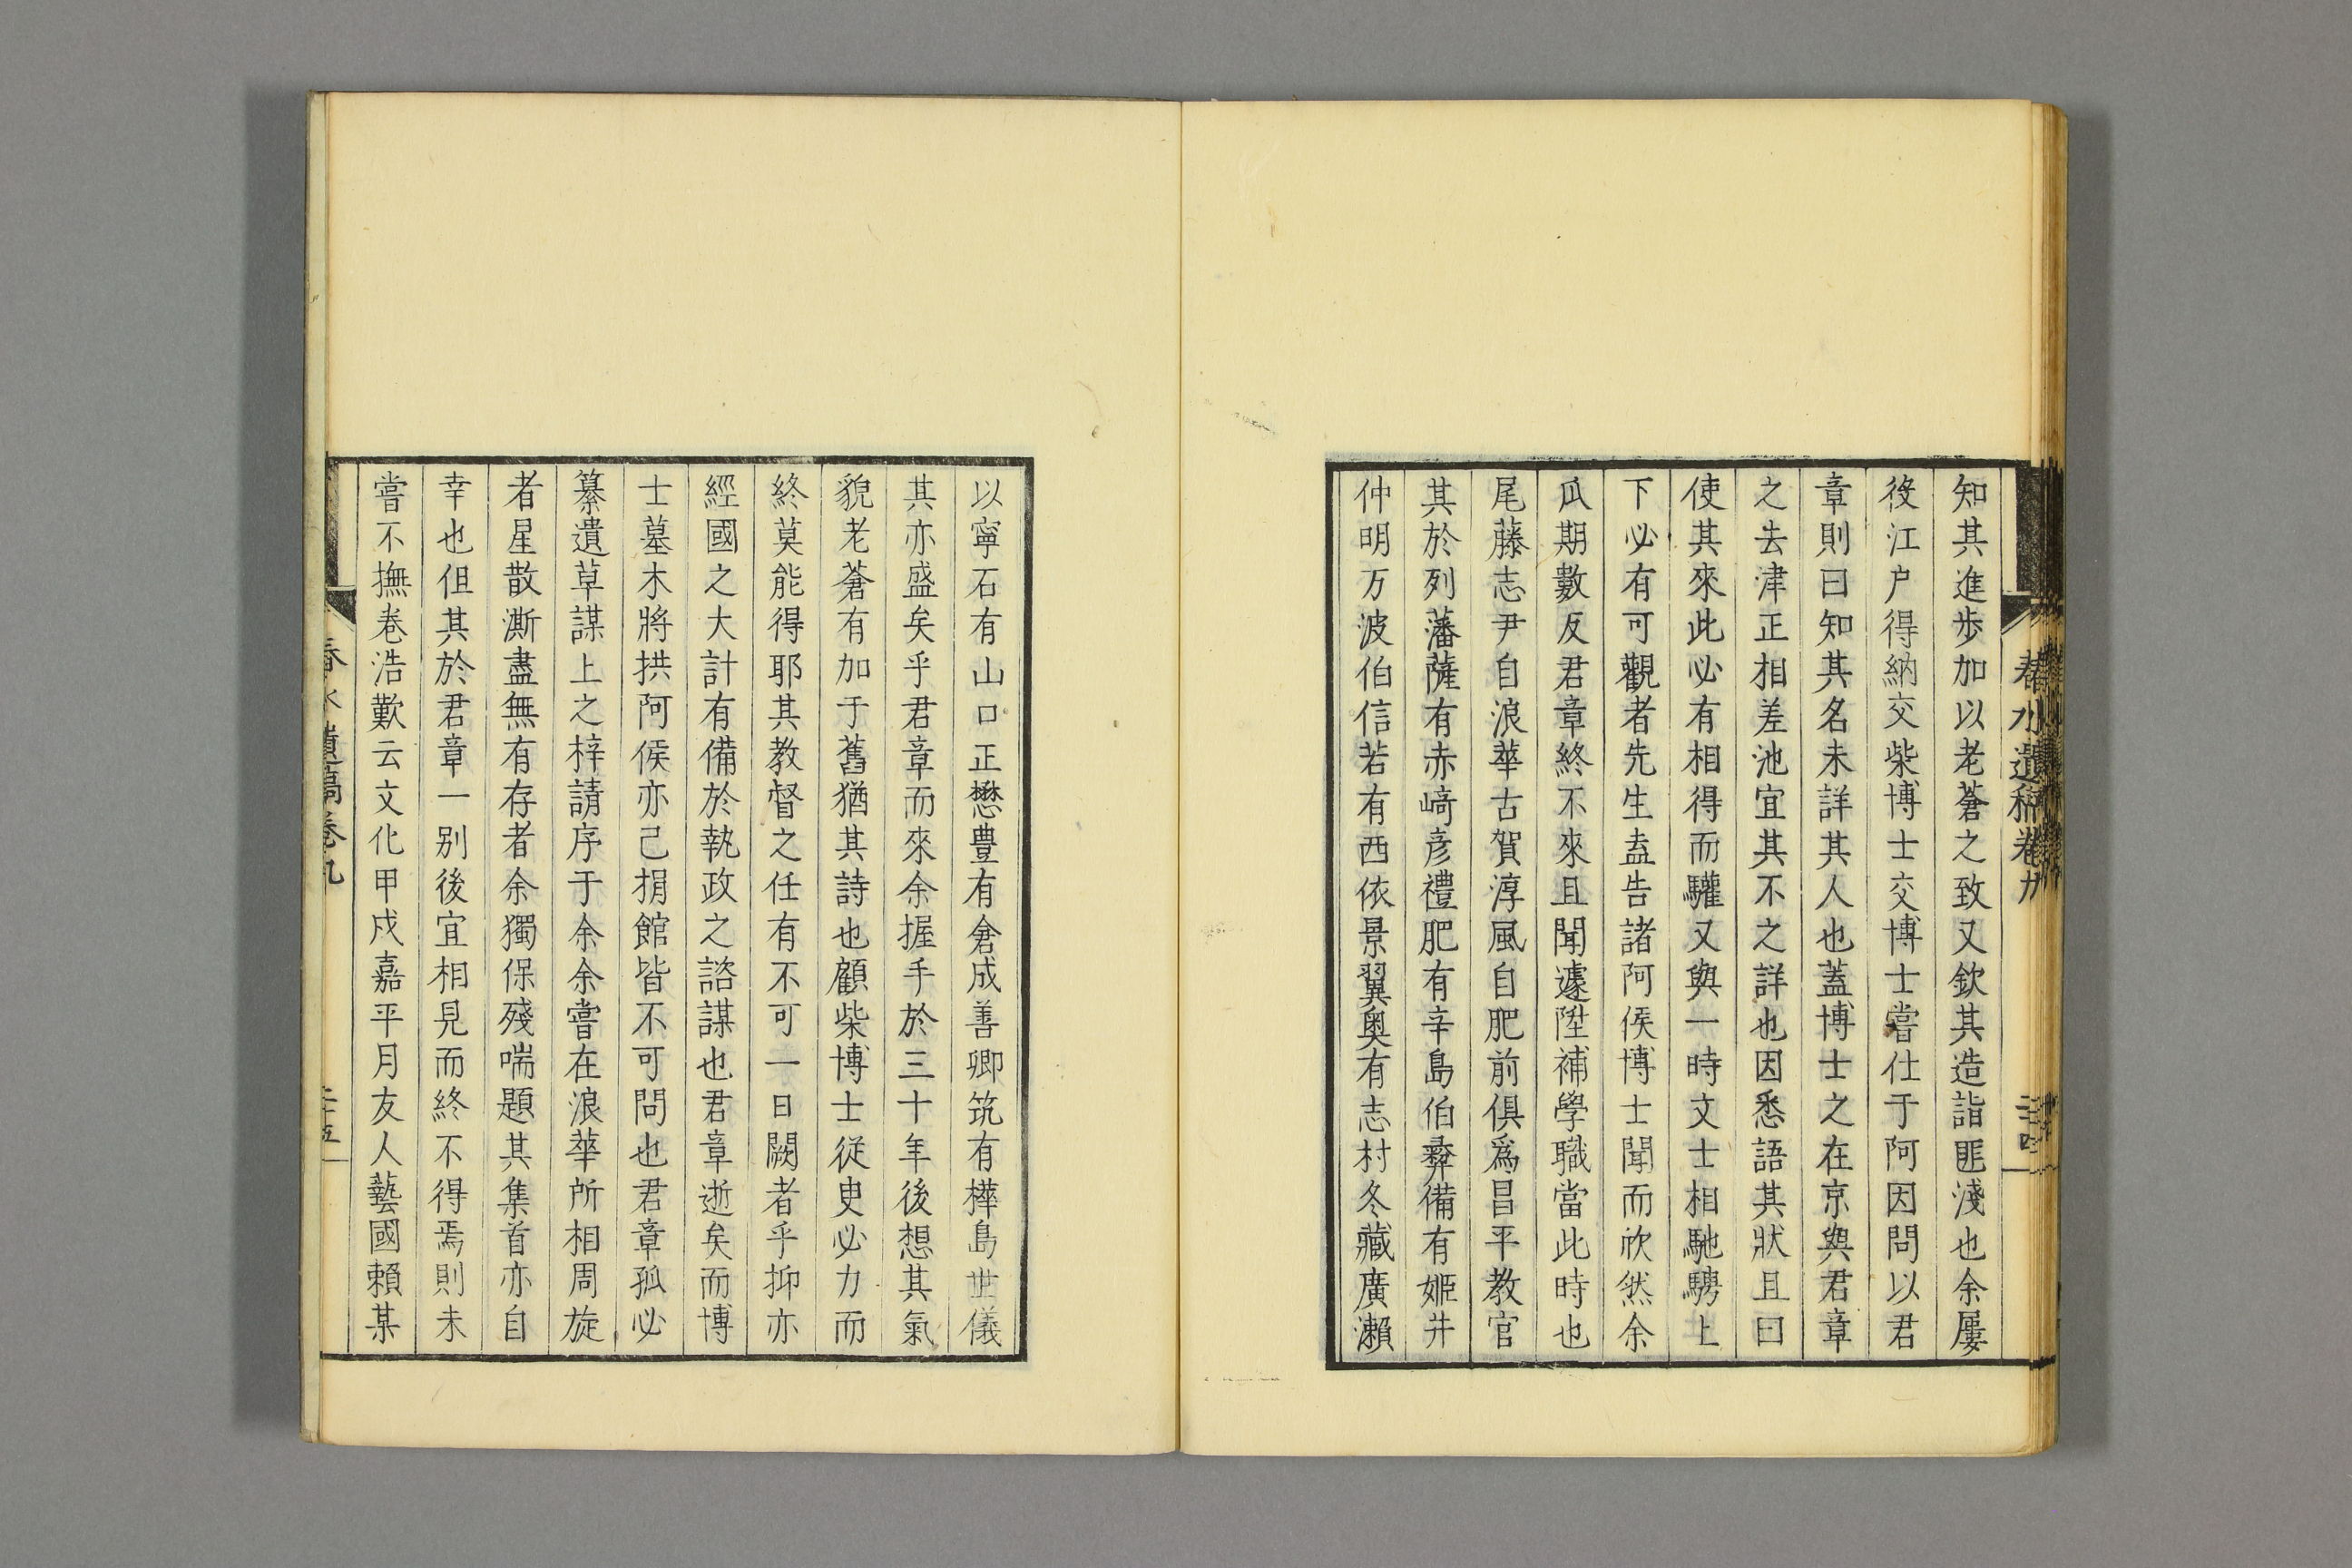 知其進歩加以老蒼之致又欽其造詣匪淺也余屢
役江户得納交柴博士交博士嘗仕于阿因問以君
章則曰知其名未詳其人也蓋博士之在京與君章
之去津正相差池宜其不之詳也因悉語其狀且曰
使其來此必有相得而驩又與一時文士相馳騁上
下必有可觀者先生盍告諸阿侯博士聞而欣然余
瓜期數反君章終不來且聞遽陞補學職當此時也
尾藤志尹自浪華古賀淳風自肥前俱爲昌平教官
其於列藩薩有赤﨑彦禮肥有辛島伯彜備有姫井
仲明万波伯信若有西依景翼奥有志村冬藏廣瀨
春水遺稿卷九
以寧石有山口正懋豊有倉成善卿筑有樺島世儀
其亦盛矣乎君章而來余握手於三十年後想其氣
貌老蒼有加于舊猶其詩也顧柴博士従史必力而
終莫能得耶其教督之任有不可一日闕者乎抑亦
經國之大計有備於執政之諮謀也君章逝矣而博
士墓木將拱阿侯亦己捐館皆不可問也君章孤必
纂遺草謀上之梓請序于余余嘗在浪華所相周旋
者星散澌盡無有存者余獨保殘喘題其集首亦自
幸也但其於君章一別後宜相見而終不得焉則未
嘗不撫卷浩歎云文化甲戌嘉平月友人藝國賴某
春水遺稿卷九